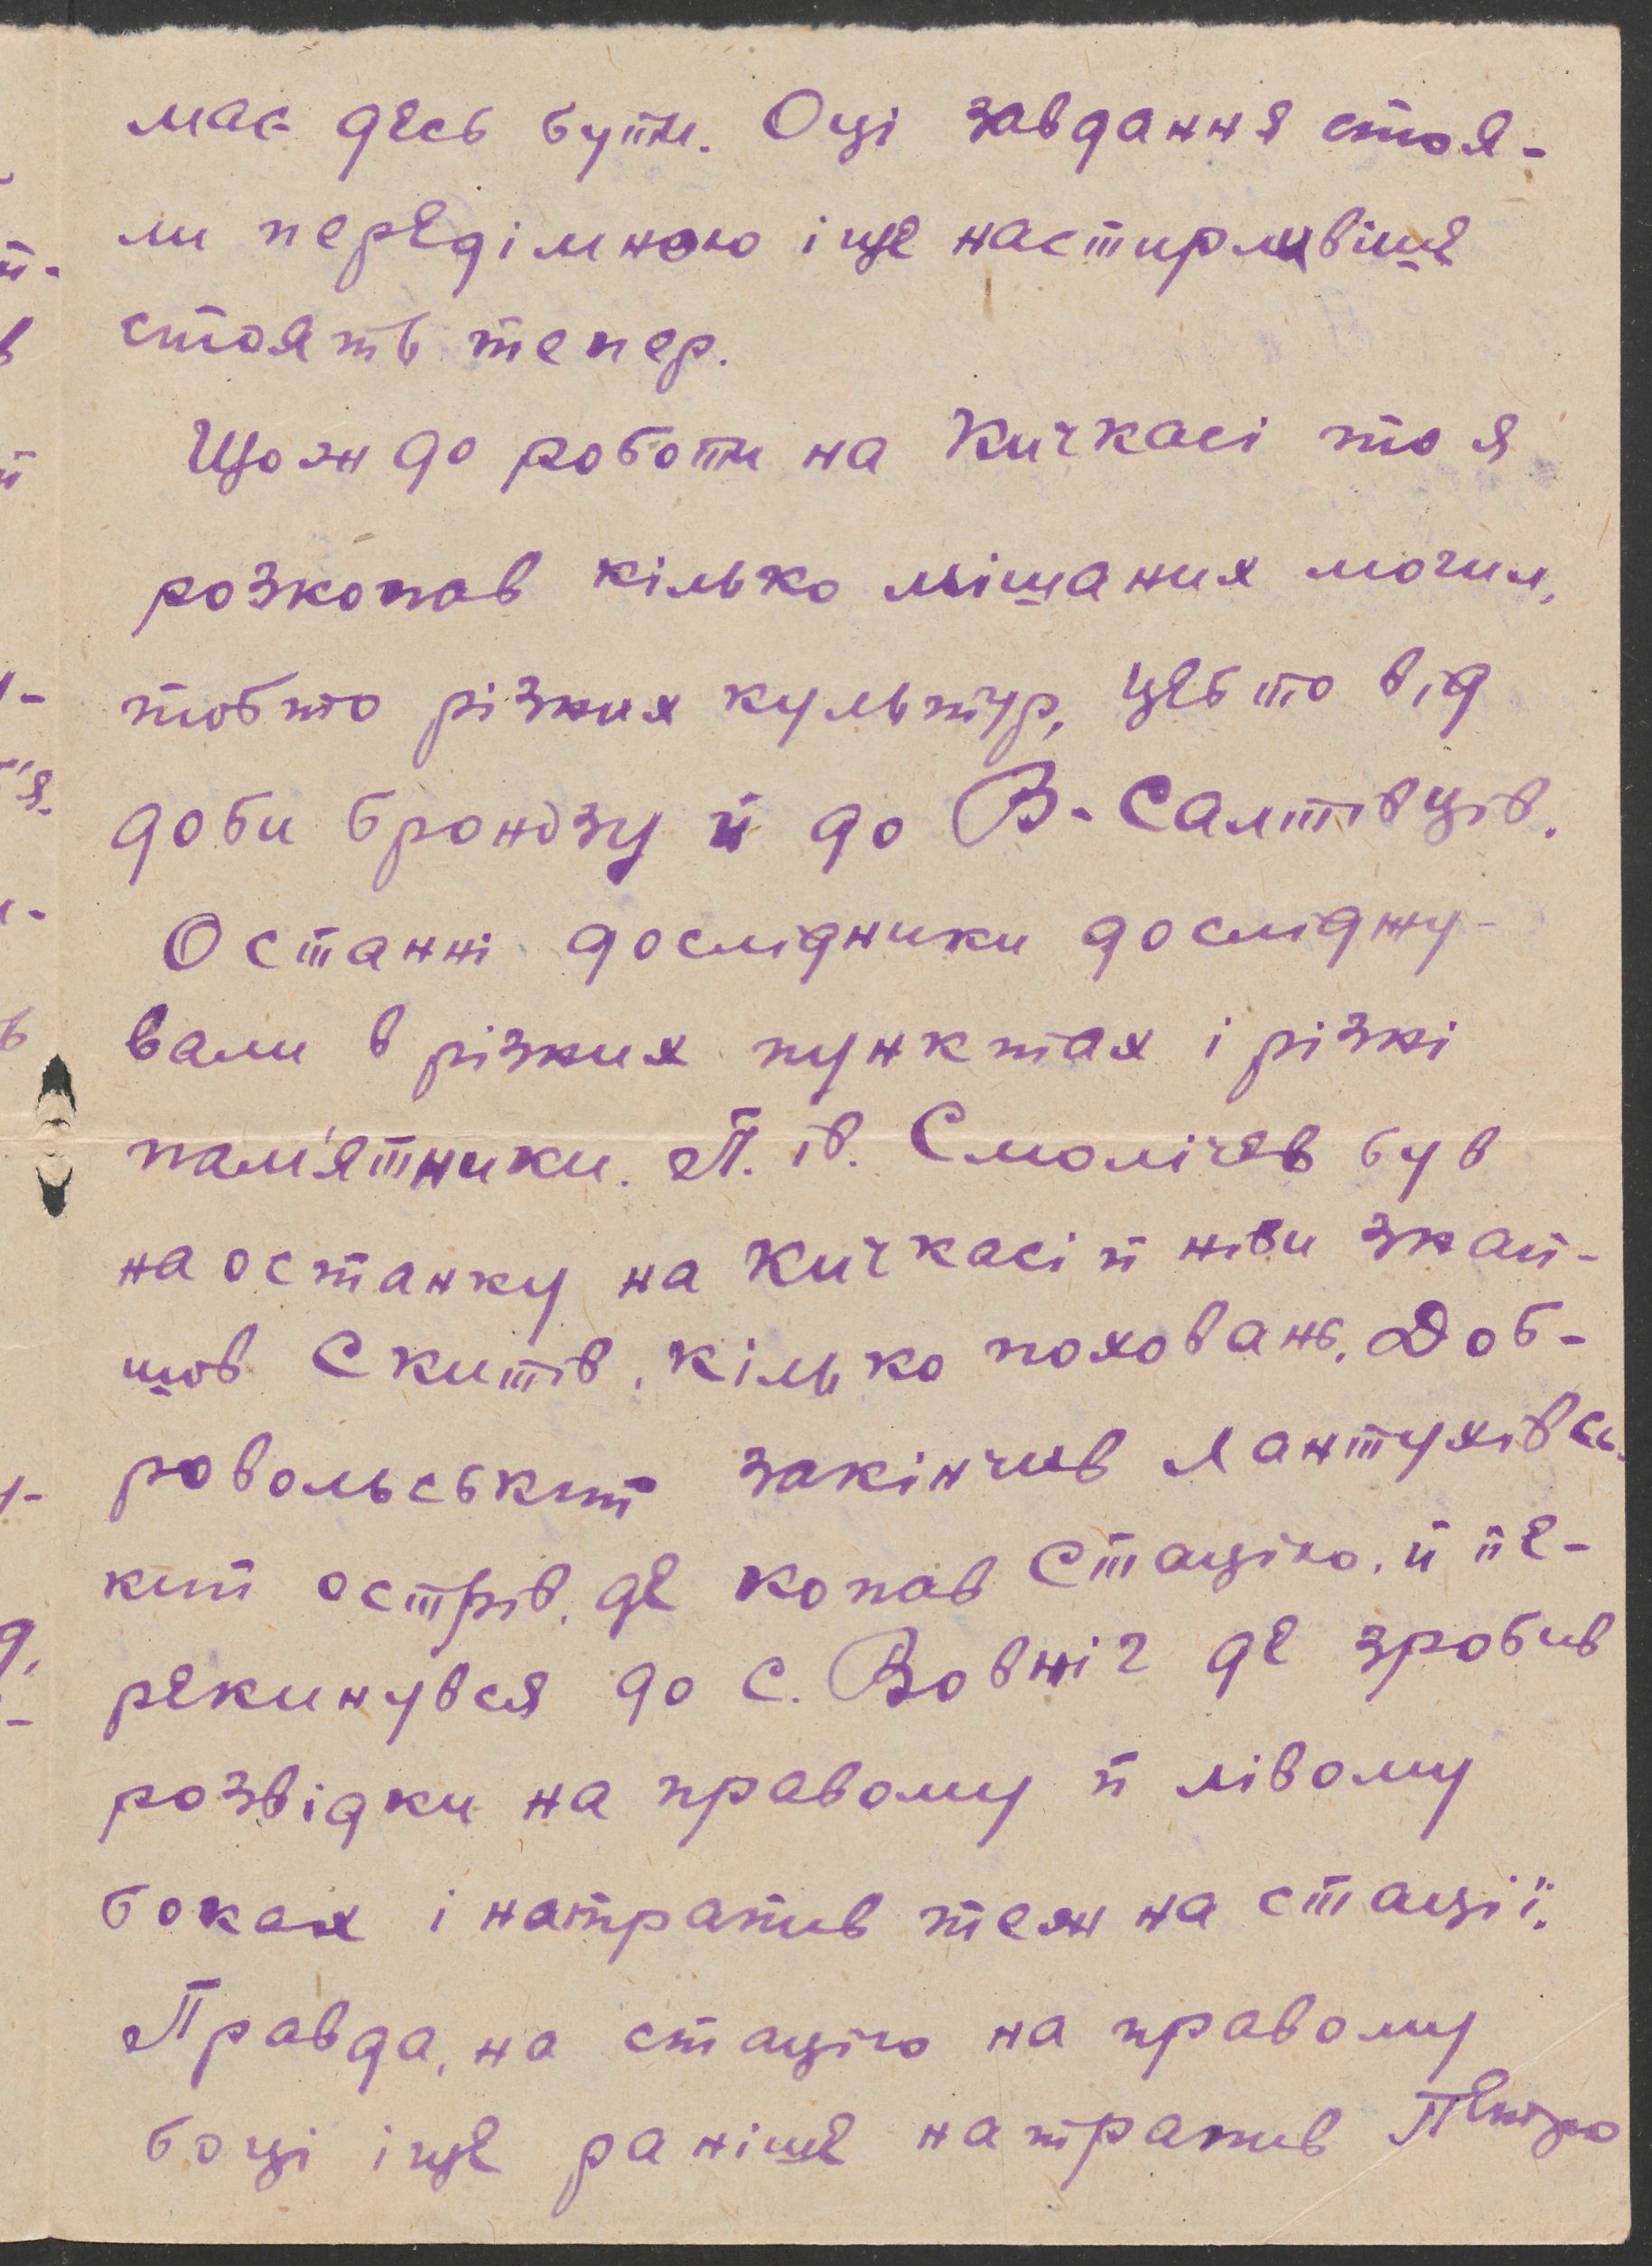 має десь бути. Оці завдання стоя-
ли переді мною і ще настирливіше
стоять тепер.
Що ж до роботи на Кичкасі то я
розкопав кілько мішаних могил,
тобто різних культур, цебто від
доби брондзу й до В-Салтівців.
Останні дослідники досліджу-
вали в різних пунктах і різні
пам'ятники. П. Ів. Смолічев був
на останку на Кичкасі й ніби знай-
шов Скитів, кілько поховань. Доб-
ровольський закінчив Лантухівсь-
кий острів, де копав стацію, й пе-
рекинувся до с. Вовніг де зробив
розвідки на правому й лівому
боках і натрапив теж на стації.
Правда, на стацію на правому
боці і ще раніше натрапив Петро